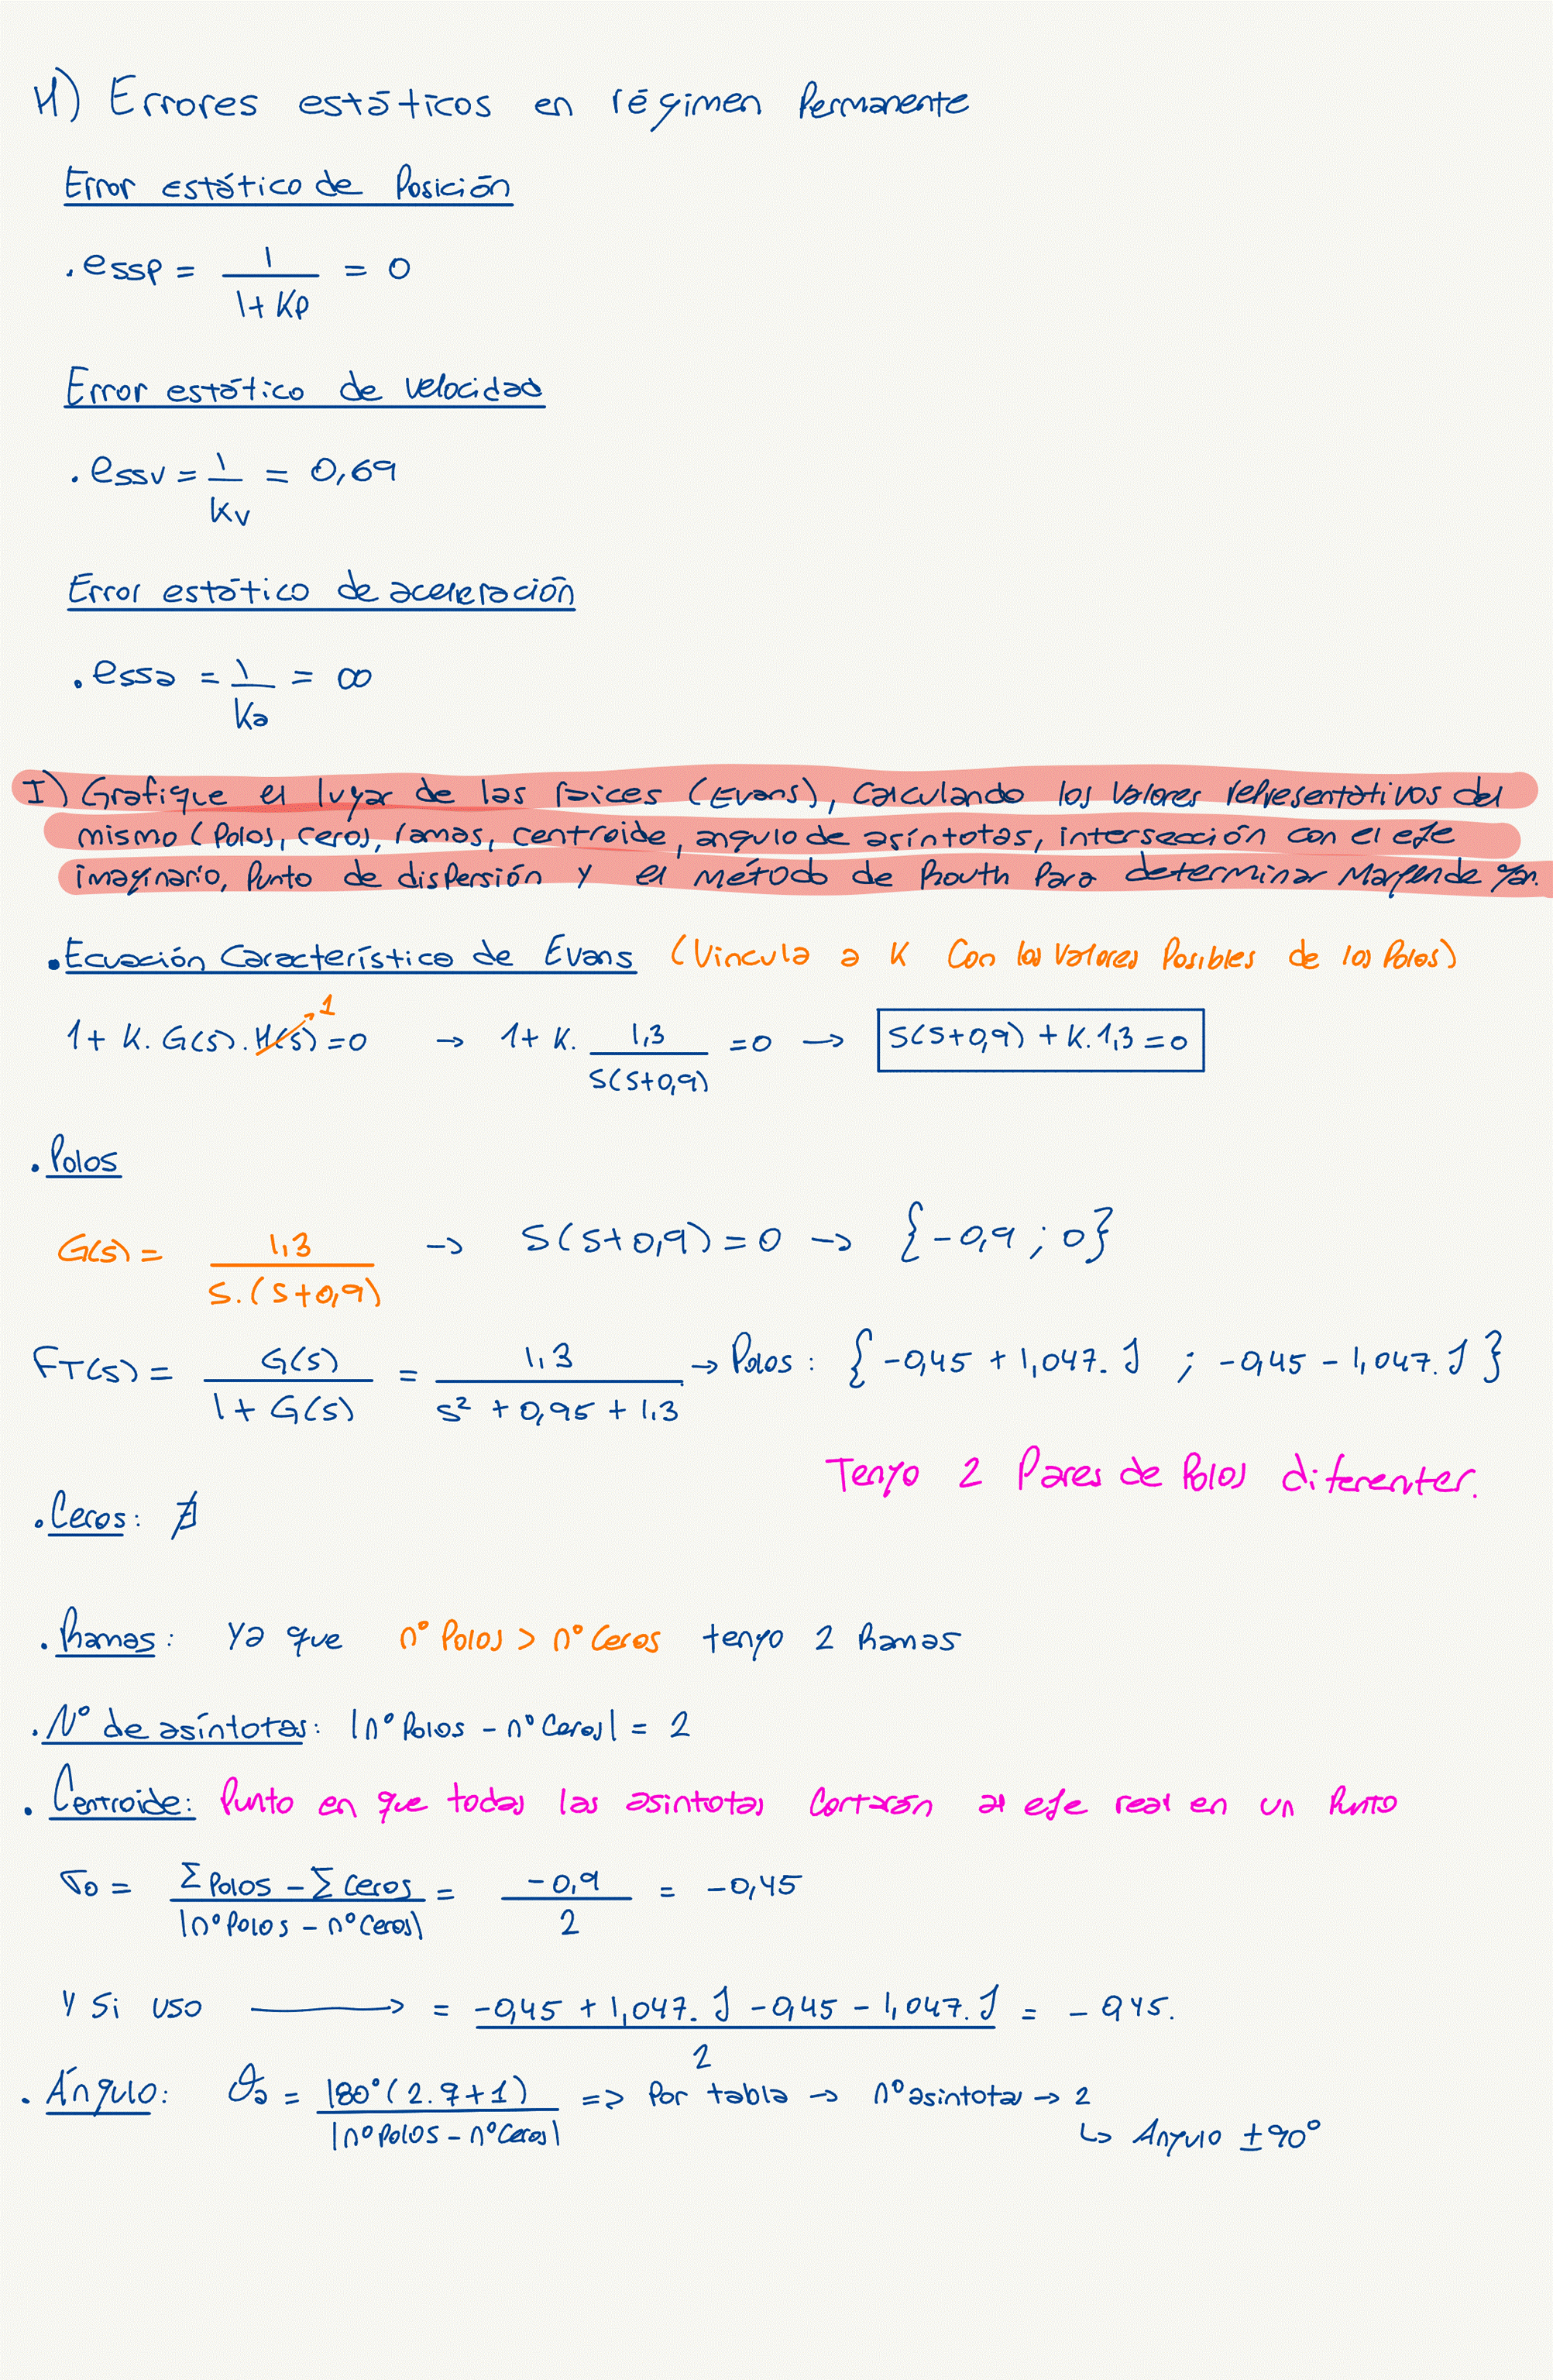 H) Errores estáticos en régimen Permanente
Error estático de Posición
. essp = 1 / (1 + Kp) = 0
Error estático de velocidad
. essv = 1 / Kv = 0,69
Error estático de aceleración
. essa = 1 / Ka = ∞
I) Grafique el lugar de las raices (Evans), calculando los valores representativos del
mismo (Polos, ceros, ramas, centroide, angulo de asíntotas, intersección con el eje
imaginario, Punto de dispersión y el método de Routh Para determinar Margen de gan.
. Ecuación Característica de Evans (Vincula a K con los valores Posibles de los Polos)
1 + K. G(s). H(s)→1 = 0 → 1 + K. 1,3 / (S(S+0,9)) = 0 → S(S+0,9) + K.1,3 = 0
. Polos
G(s) = 1,3 / (S.(S+0,9)) → S(S+0,9) = 0 → {-0,9 ; 0}
FT(s) = G(s) / (1 + G(s)) = 1,3 / (s² + 0,9s + 1,3) → Polos: {-0,45 + 1,047.J ; -0,45 - 1,047.J}
Tengo 2 Pares de Polos diferenter.
. Ceros: ∄
. Ramas: Ya que n° Polos > n° Ceros tengo 2 Ramas
. N° de asíntotas: |n° Polos - n° Ceros| = 2
. Centroide: Punto en que todas las asintotas Cortarán al eje real en un Punto
σo = (Σ Polos - Σ Ceros) / |n° Polos - n° Ceros| = -0,9 / 2 = -0,45
Y Si uso → = (-0,45 + 1,047.J - 0,45 - 1,047.J) / 2 = -0,45.
. Ángulo: θa = 180°(2.q+1) / |n° Polos - n° Ceros| => Por tabla → n° asintotas → 2
↳ Angulo ±90°